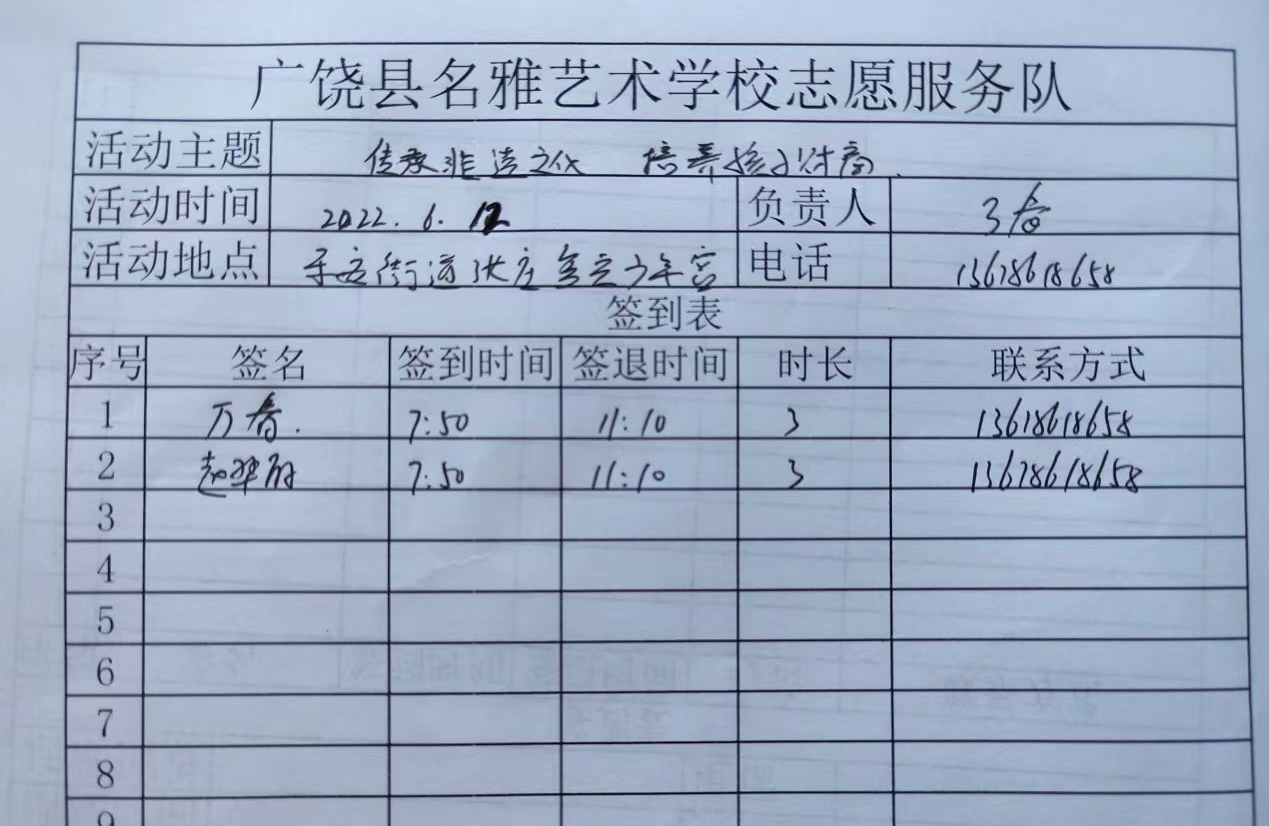 广饶县名雅艺术学校志愿服务队
活动主题 传承非遗文化 培养孩子财商
活动时间 2022.6.12 负责人
活动地点 街道张庄 少年宫 电话 13678618658
签到表
序号 签名 签到时间 签退时间 时长 联系方式
1 万春. 7:50 11:10 3 13678618658
2 赵翠 7:50 11:10 3 13678618658
3
4
5
6
7
8
9